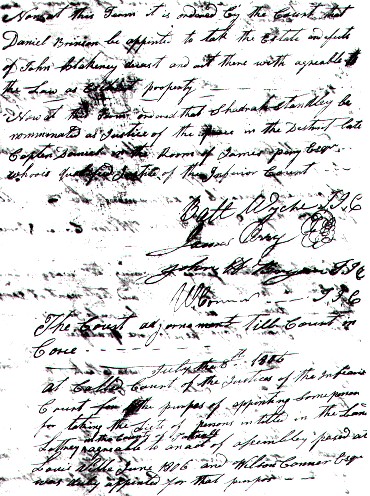 Now at this Term it is ordered by the Court that
Daniel Brinson be appointed to take the Estate in efects
of John Blakeney deceast and act there with agreable to
the Law as Escheat property
Now at this Term ordered that Shadrak Stankley be
nominated as Justice of the peace in the District late
Captan Daniels in the Room of James pery Esqr
who is qualified Justice of the Inferior Court
Batt Wyche J I C
James Perry
John I I C
W Connor J I C
The Court adjornament till Court in
Corce
July the 8th 1806
At Called Court of the Justices of the Inferior
Court for the purpos of appointing some person
for taking the Lists of persons intitled in the Land
in the County of
Lottrey agreeable to an act of Assembly passed at
Louis Ville June 1806 and Wilson Connor Esqr
was duly appointed for that purpos